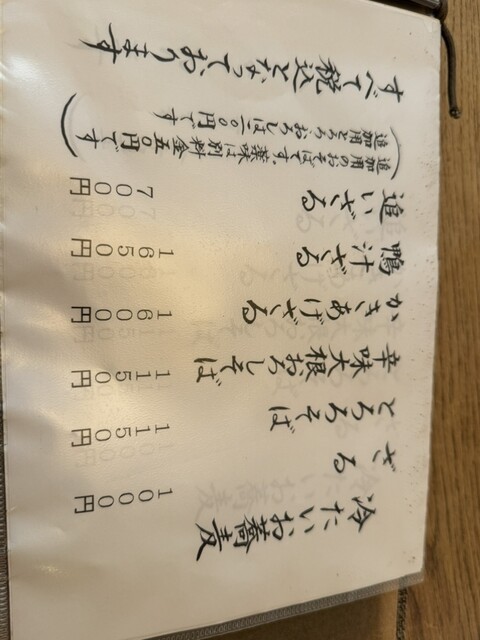 冷たいお蕎麦
ざる 1000円
とろろそば 1150円
辛味大根おろしそば 1150円
かきあげざる 1600円
鴨汁ざる 1650円
追いざる 700円
(追加用のおそばです、薬味は別料金五〇円です
追加用とろろ、おろしは二〇〇円です)
すべて税込となっております